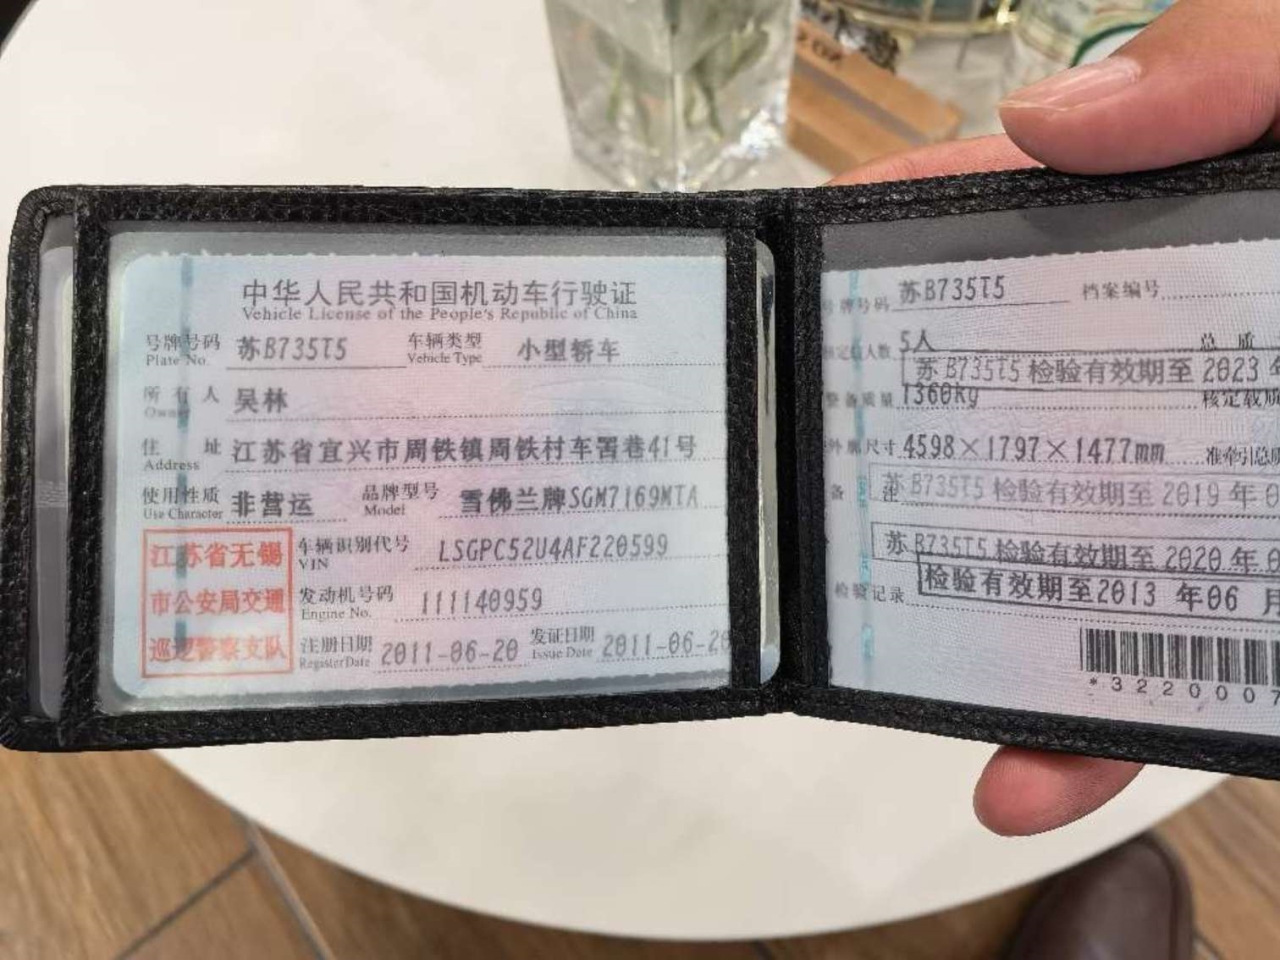 中华人民共和国机动车行驶证
Vehicle License of the People's Republic of China
号牌号码 苏B735T5 车辆类型 小型轿车
Plate No. Vehicle Type
所有人 吴林
Owner
住址 江苏省宜兴市周铁镇周铁村车罟巷41号
Address
使用性质 非营运 品牌型号 雪佛兰牌SGM7169MTA
Use Character Model
江苏省无锡
市公安局交通
巡逻警察支队
车辆识别代号 LSGPC52U4AF220599
VIN
发动机号码 111140959
Engine No.
注册日期 2011-06-20 发证日期 2011-06-20
Register Date Issue Date
号牌号码 苏B735T5 档案编号
核定载人数 5人 总质
苏B735T5 检验有效期至 2023 年
整备质量 1360kg 核定载质
外廓尺寸 4598×1797×1477mm 准牵引总质
备注 苏B735T5 检验有效期至 2019 年0
苏B735T5 检验有效期至 2020 年0
检验有效期至2013 年06 月
检验记录
*3220007